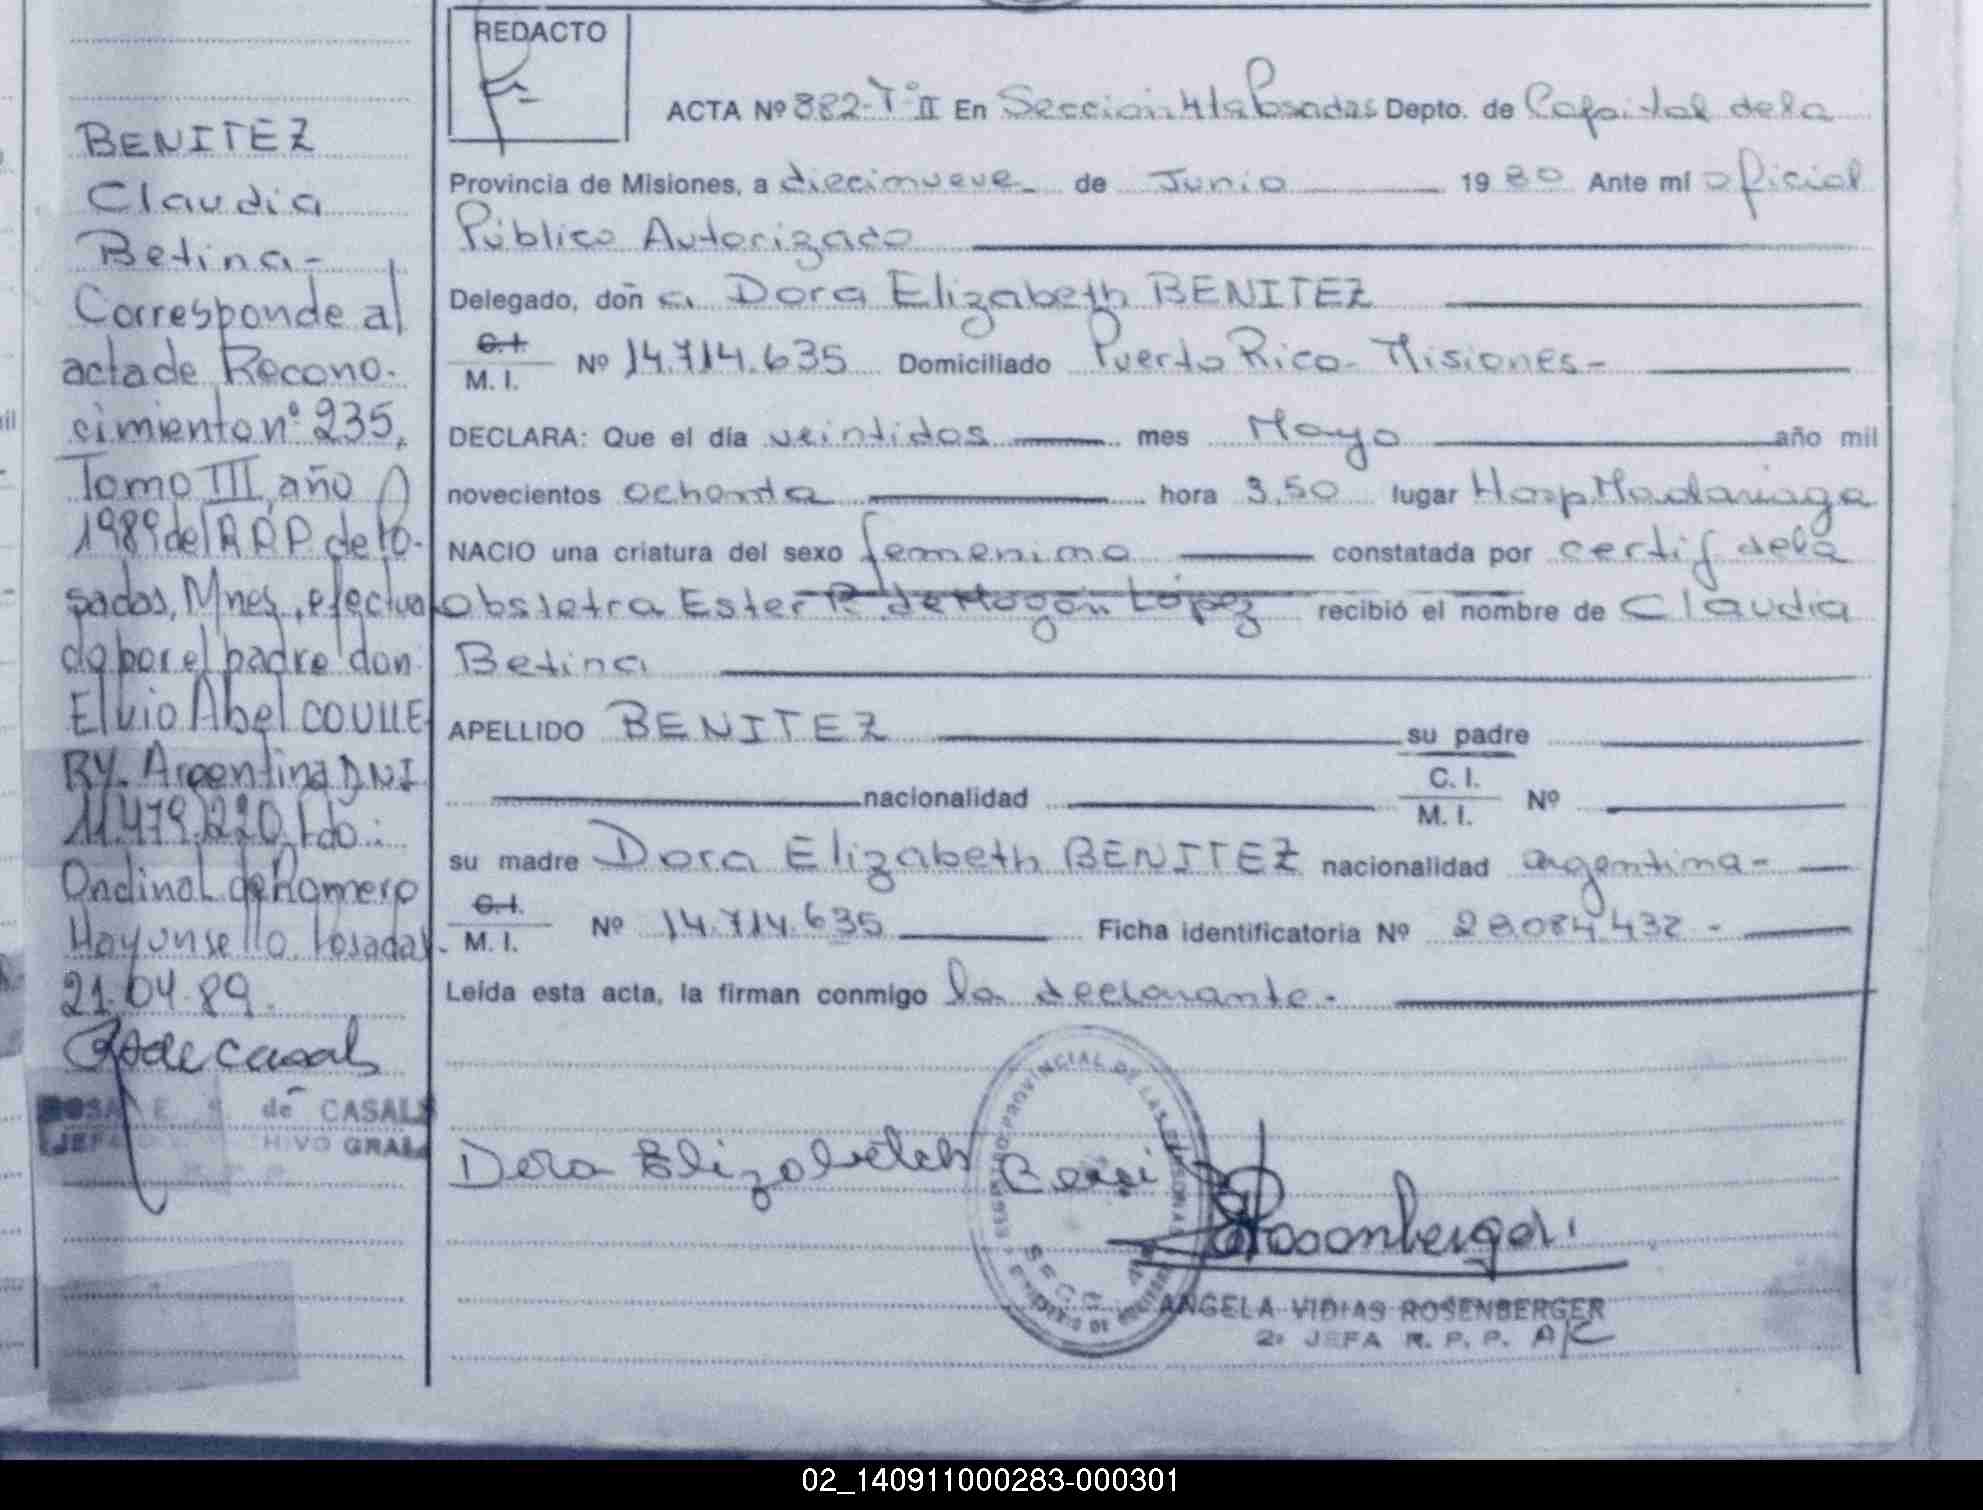 BENITEZ
Claudia
Betina-
Corresponde al
acta de Recono-
cimiento nº 235,
Tomo III, año
1989 del R.P.P. de Po-
sadas, Mnes, efectua
do por el padre don
Elvio Abel COULLE
RY. Argentina DNI
11.479.220. Fdo:
Ondina L. de Romero
Hay un sello. Posadas
21.04.89.
de Casals
de CASALS
HIVO GRAL
REDACTO
ACTA Nº 882-Tº II En Sección 4ta Posadas Depto. de Capital de la
Provincia de Misiones, a diecinueve de Junio 1980 Ante mí oficial
Público Autorizado
Delegado, doña Dora Elizabeth BENITEZ
C.I.
M. I. Nº 14.714.635 Domiciliado Puerto Rico- Misiones-
DECLARA: Que el día veintidos mes Mayo año mil
novecientos ochenta hora 3,50 lugar Hosp Madariaga
NACIO una criatura del sexo femenino constatada por certif de la
obstetra Ester R. de Mogán López recibió el nombre de Claudia
Betina
APELLIDO BENITEZ su padre
nacionalidad C. I.
M. I. Nº
su madre Dora Elizabeth BENITEZ nacionalidad argentina-
C.I.
M. I. Nº 14.714.635 Ficha identificatoria Nº 28.084.432-
Leída esta acta, la firman conmigo la declarante.-
REGISTRO PROVINCIAL DE LAS PERSONAS
Dora Elizabeth Beni
Rosenberger
ANGELA VIDIAS ROSENBERGER
2ª JEFA R. P. P. A/C
02_140911000283-000301